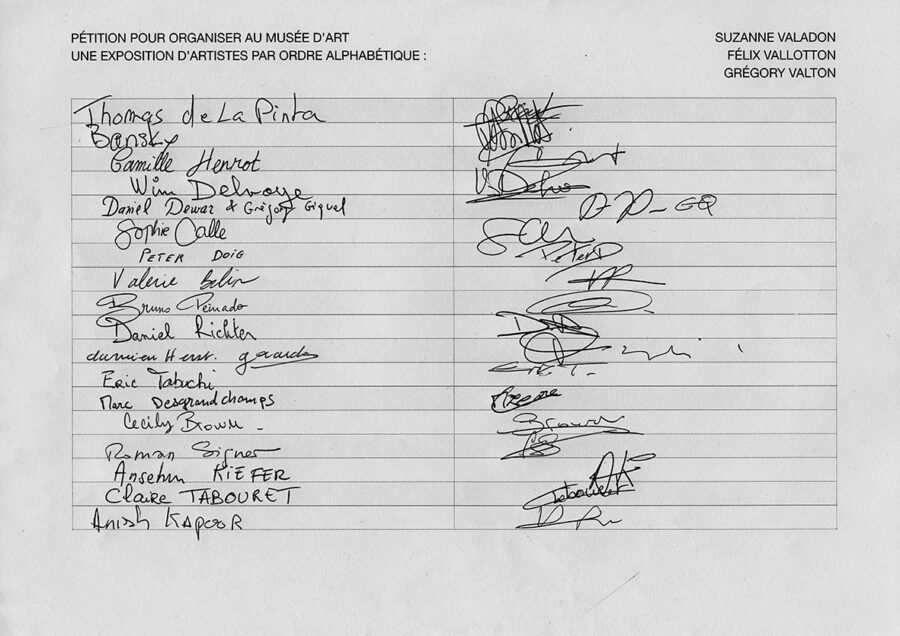 PÉTITION POUR ORGANISER AU MUSÉE D'ART
UNE EXPOSITION D'ARTISTES PAR ORDRE ALPHABÉTIQUE :
SUZANNE VALADON
FÉLIX VALLOTTON
GRÉGORY VALTON
Thomas de La Pinta
Bansky
Camille Henrot
Wim Delvoye
Daniel Dewar & Grégory Giquel
Sophie Calle
PETER DOIG
PeterD
Valerie Belin
Bruno Peinado
Daniel Richter
damien Herst.
Eric Tabuchi
Eric T.
Marc Desgrandchamps
Cecily Brown
Brown
Roman Signer
Anselm KIEFER
AK
Claire TABOURET
Tabouret
Anish KAPOOR